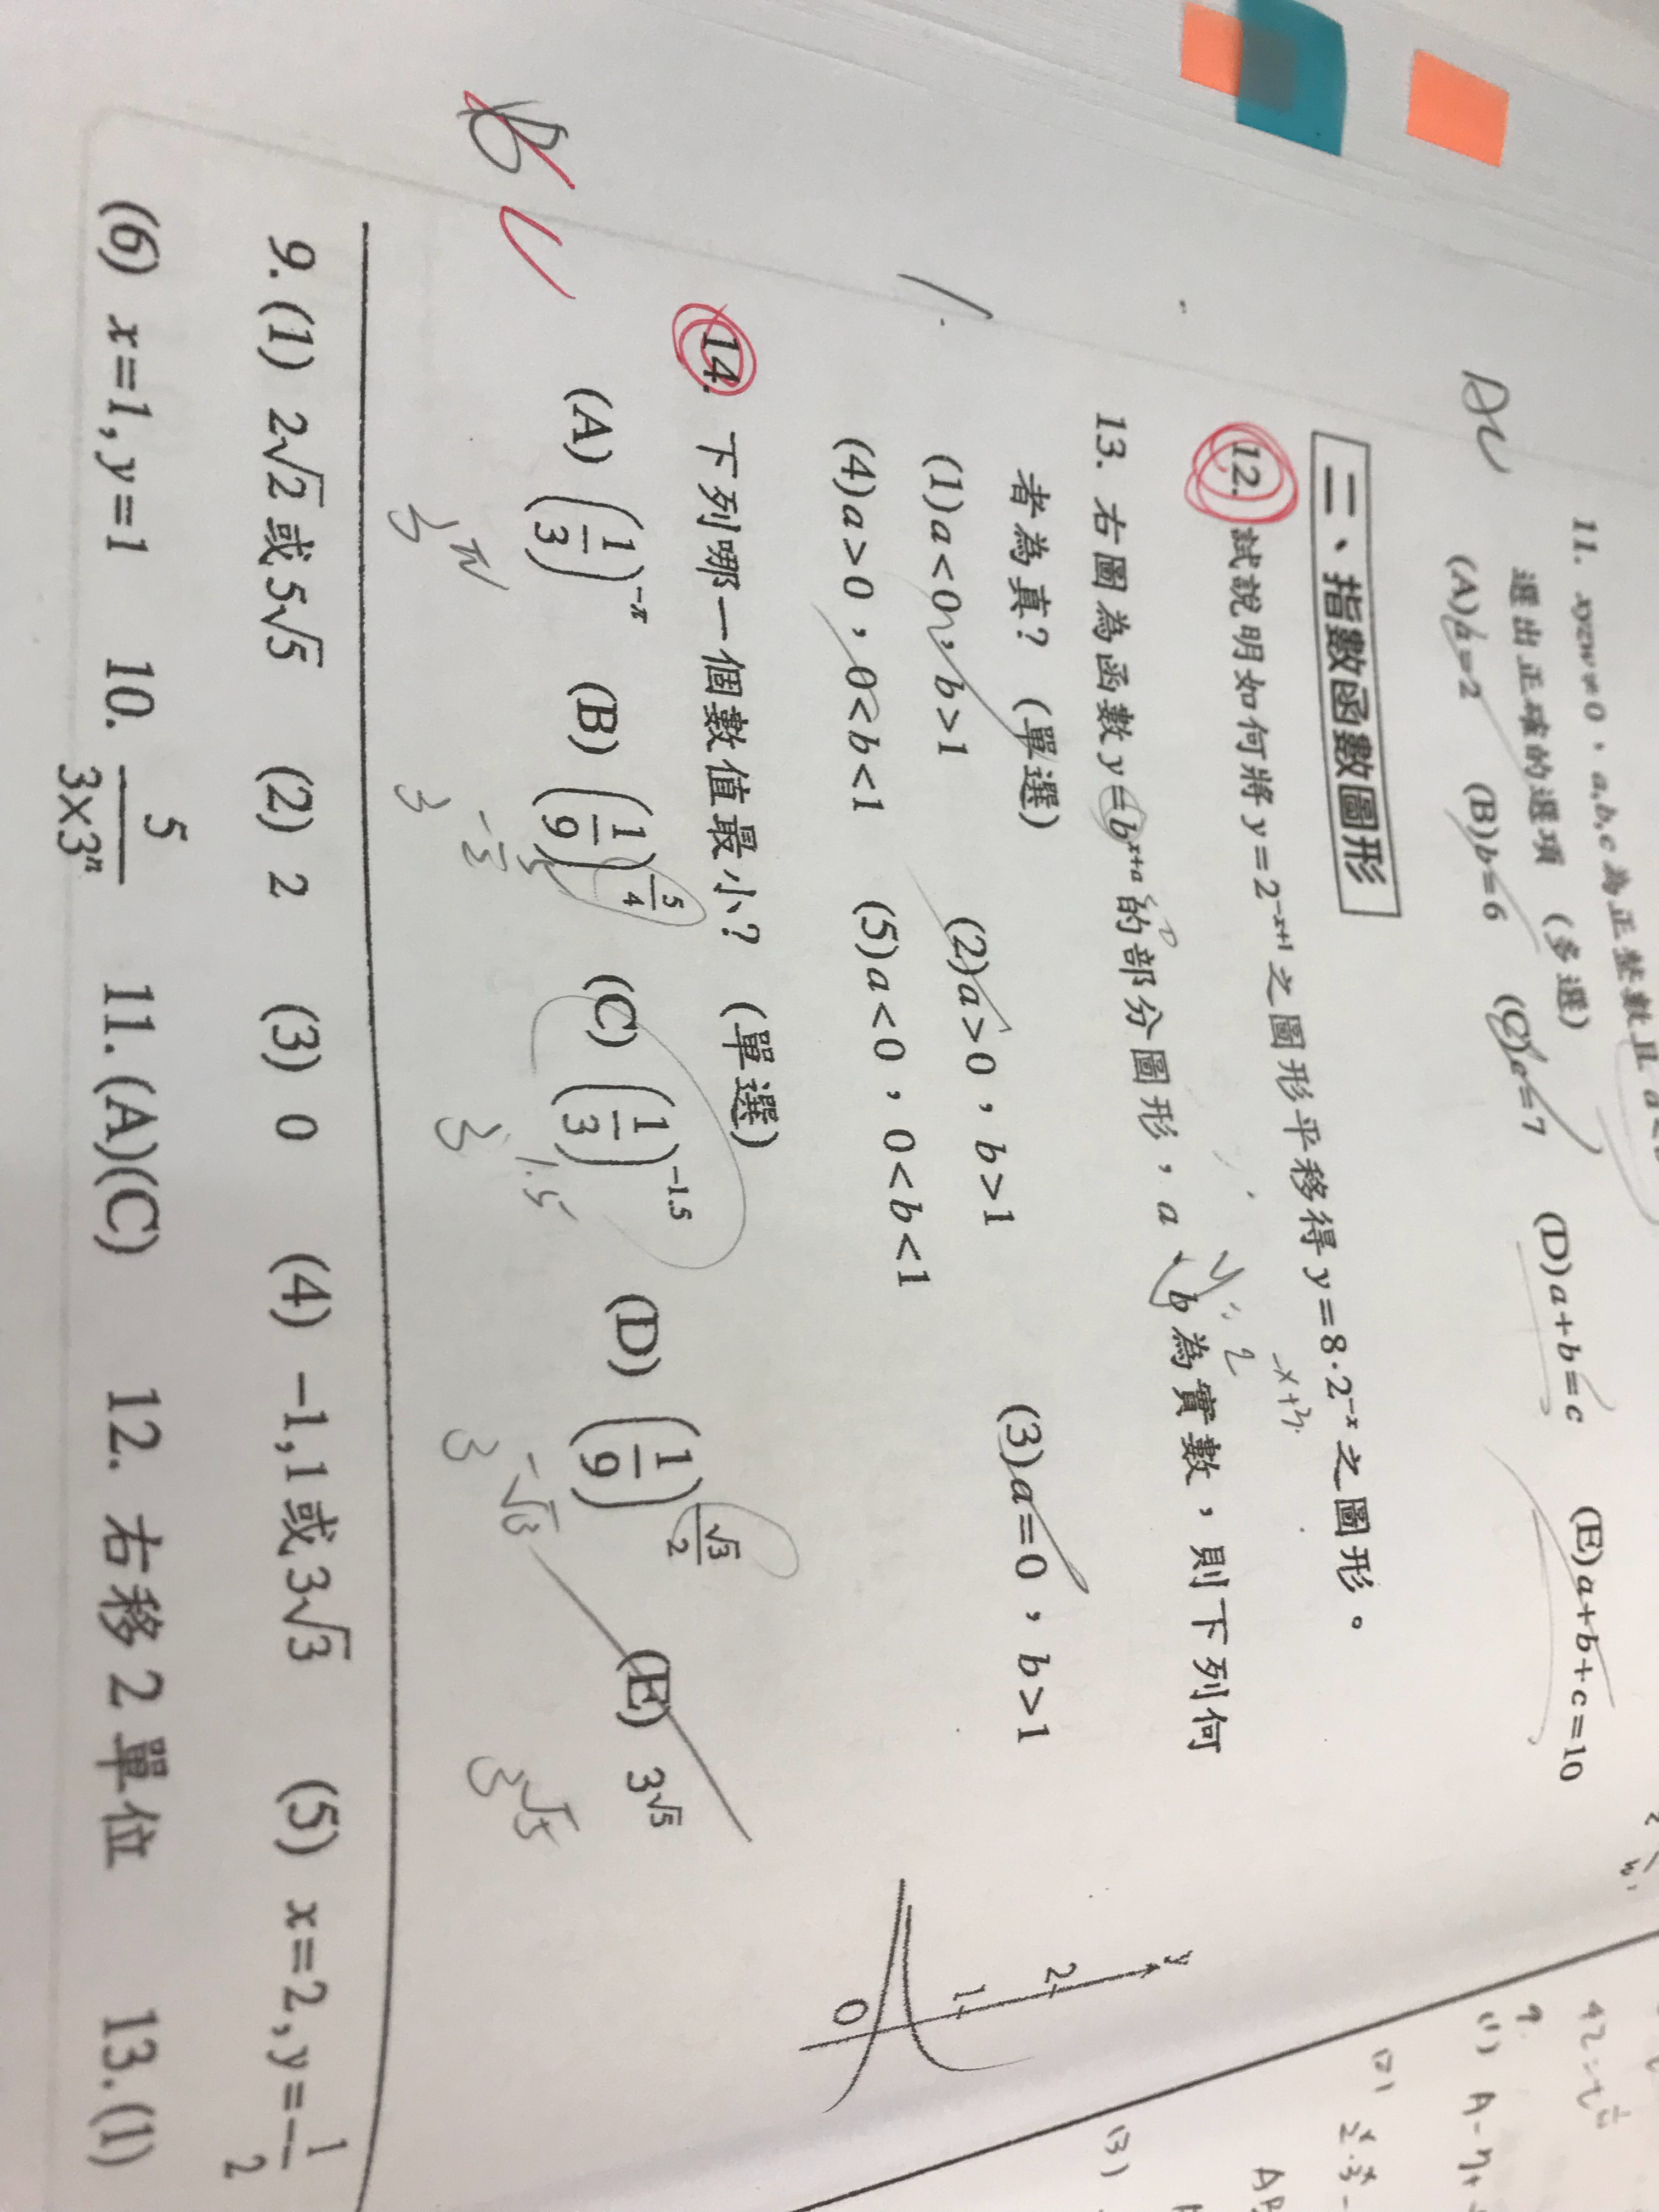 11. xyzw≠0，a,b,c為正整數且
選出正確的選項 (多選)
(A)a=2 (B)b=6 (C)c=7 (D)a+b=c (E)a+b+c=10
二、指數函數圖形
12. 試說明如何將 y=2⁻ˣ⁺¹ 之圖形平移得 y=8·2⁻ˣ 之圖形。
-x+3
y=2
13. 右圖為函數 y=bˣ⁺ᵃ 的部分圖形，a、b 為實數，則下列何
者為真？ (單選)
(1)a<0，b>1 (2)a>0，b>1 (3)a=0，b>1
(4)a>0，0<b<1 (5)a<0，0<b<1
y
2
1
O
14. 下列哪一個數值最小？ (單選)
(A) (1/3)^(-π) (B) (1/9)^(5/4) (C) (1/3)^(-1.5) (D) (1/9)^(√3/2) (E) 3^(√5)
3^π 3 3^1.5 3^(-√3) 3^√5
9. (1) 2√2 或 5√5 (2) 2 (3) 0 (4) -1,1 或 3√3 (5) x=2, y=-1/2
(6) x=1, y=1 10. 5/(3×3ⁿ) 11. (A)(C) 12. 右移 2 單位 13. (1)